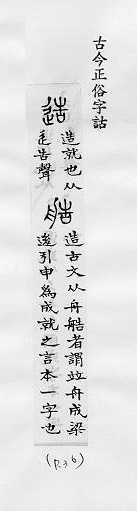 古今正俗字詁
造 造就也从
辵告聲
艁 造古文从舟艁者謂竝舟成梁
後引申為成就之言本一字也
(P.36)